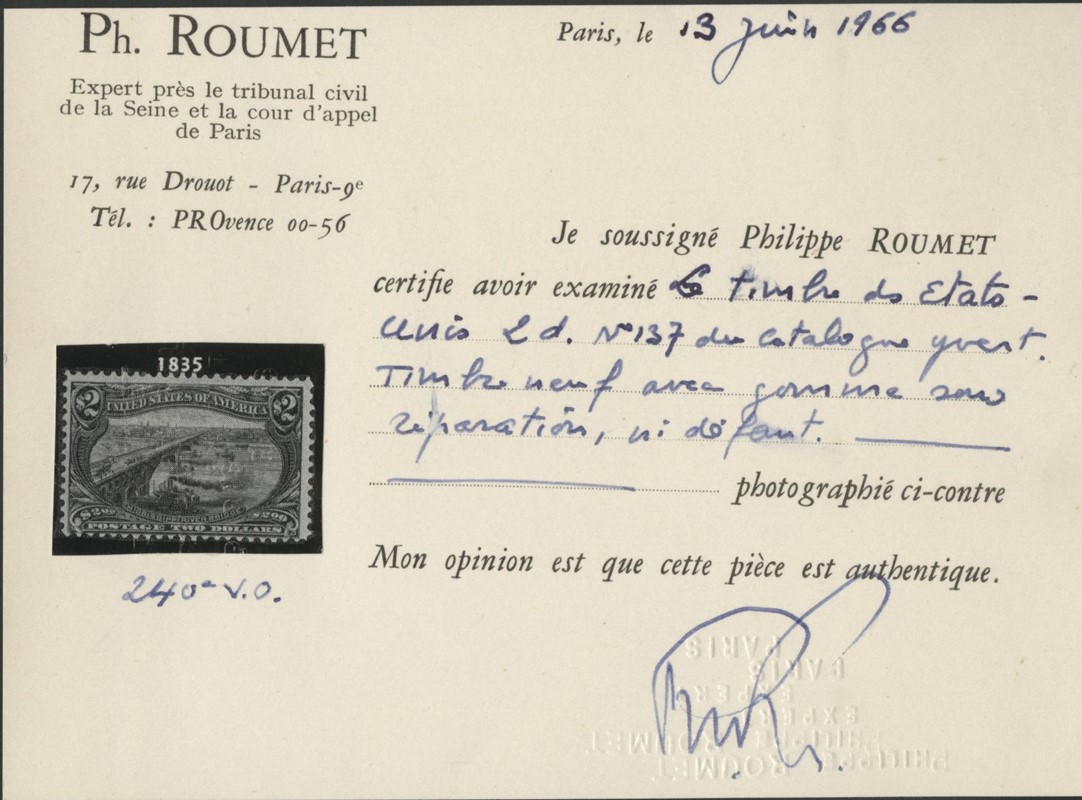 Ph. ROUMET
Expert près le tribunal civil
de la Seine et la cour d'appel
de Paris
17, rue Drouot - Paris-9e
Tél. : PROvence 00-56
Paris, le 13 juin 1966
Je soussigné Philippe ROUMET
certifie avoir examiné le timbre des Etats-
Unis 2 d. N° 137 du catalogue yvert.
Timbre neuf avec gomme sans
réparation, ni défaut.
photographié ci-contre
Mon opinion est que cette pièce est authentique.
1835
$2 UNITED STATES OF AMERICA $2
MISSISSIPPI RIVER BRIDGE
$2.00 $2.00
POSTAGE TWO DOLLARS
V.O.
PARIS
PARIS
EXPERT
EXPERT
PHILIPPE ROUMET
PHILIPPE ROUMET